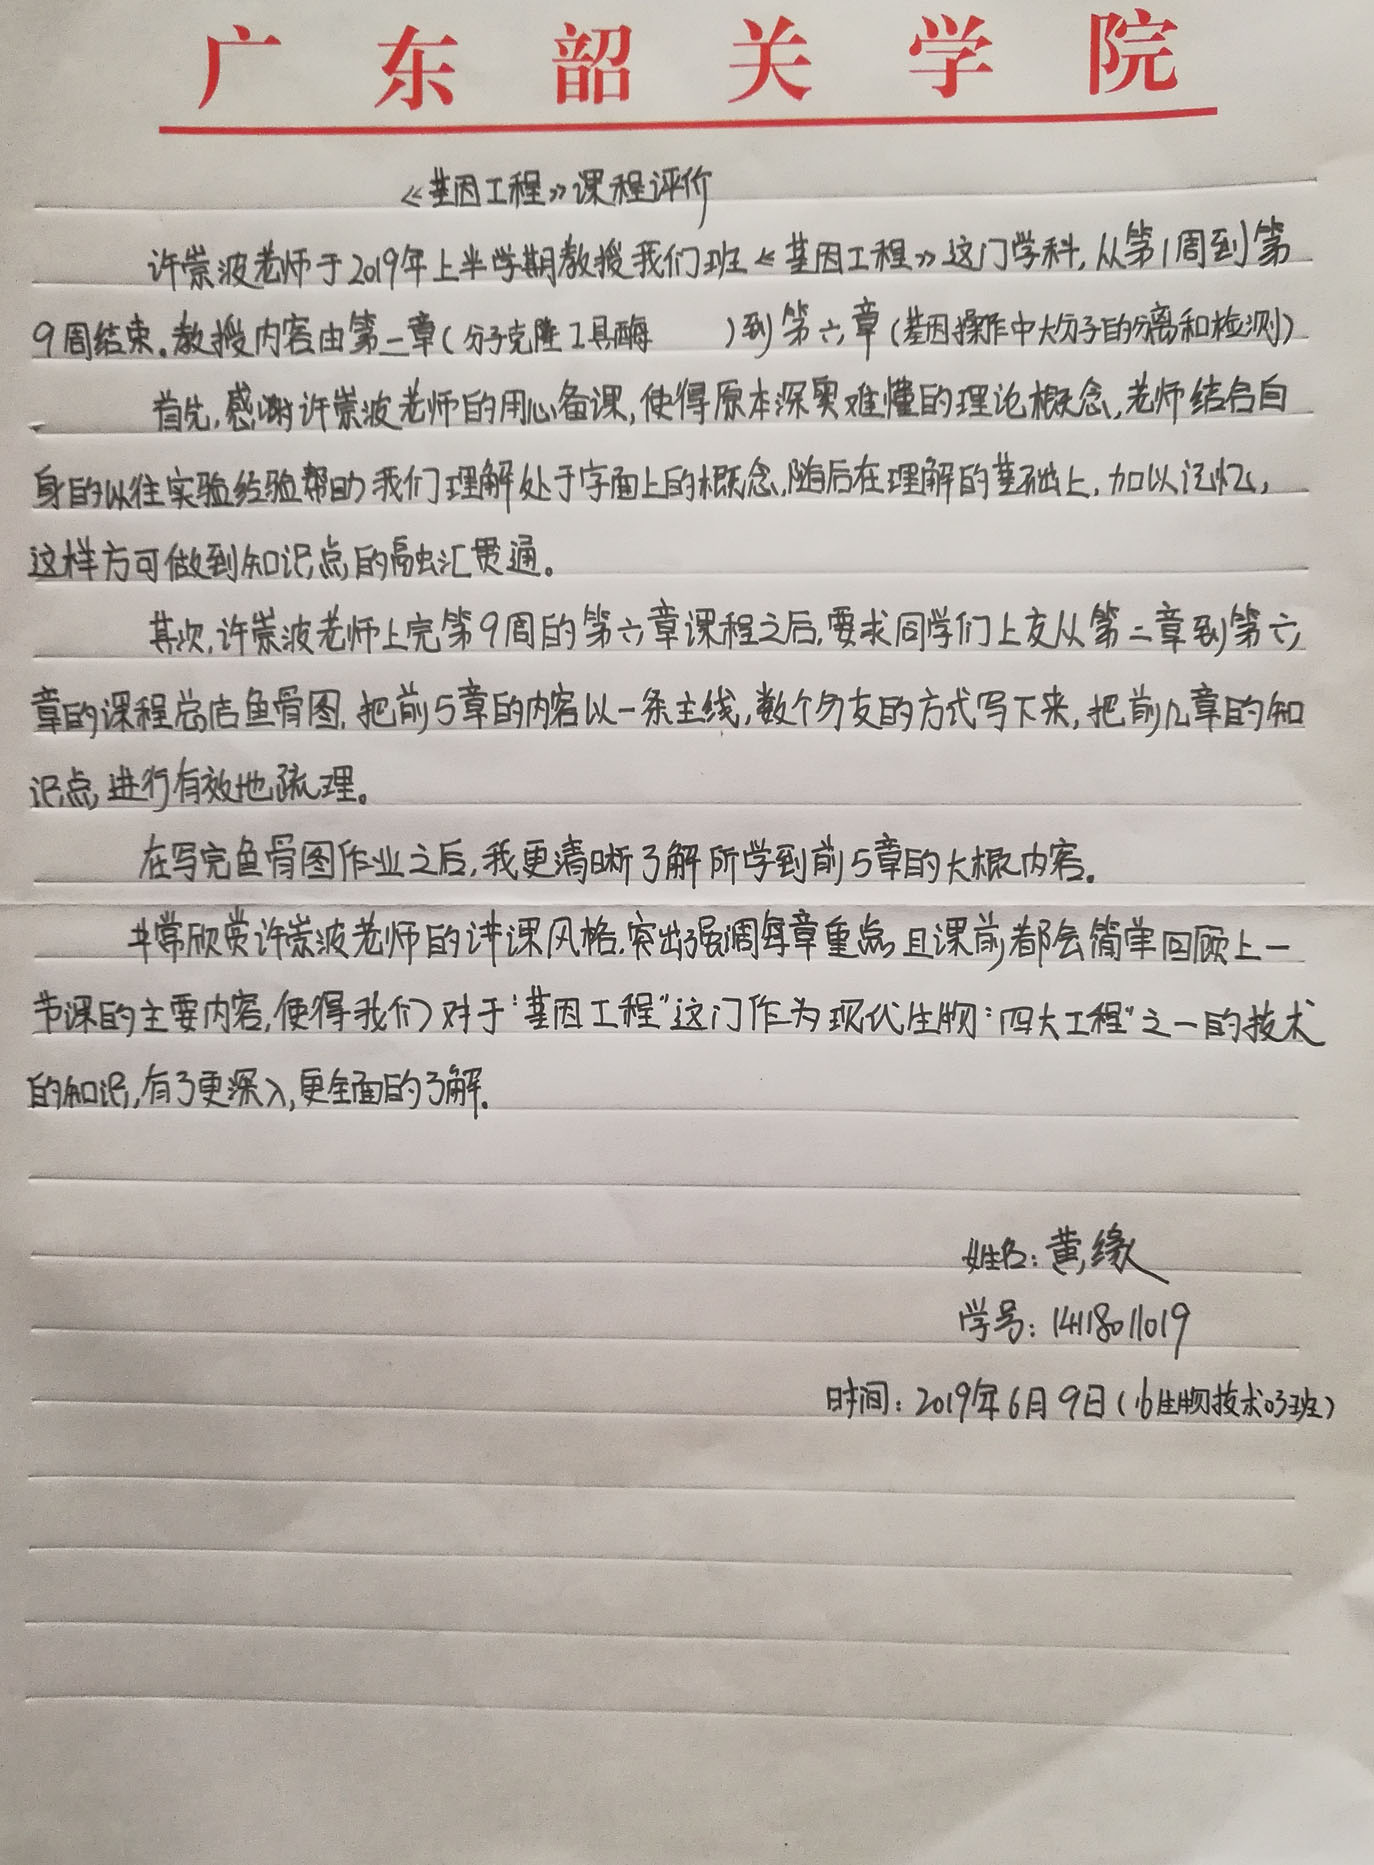 广东韶关学院
《基因工程》课程评价
许崇波老师于2019年上半学期教授我们班《基因工程》这门学科,从第1周到第
9周结束。教授内容由第二章(分子克隆工具酶 )到第六章(基因操作中大分子的分离和检测)
首先,感谢许崇波老师的用心备课,使得原本深奥难懂的理论概念,老师结合自
身的以往实验经验帮助我们理解处于字面上的概念,随后在理解的基础上,加以记忆,
这样方可做到知识点的融汇贯通。
其次,许崇波老师上完第9周的第六章课程之后,要求同学们上交从第二章到第六
章的课程总结鱼骨图,把前5章的内容以一条主线,数个分支的方式写下来,把前几章的知
识点进行有效地疏理。
在写完鱼骨图作业之后,我更清晰了解所学到前5章的大概内容。
非常欣赏许崇波老师的讲课风格,突出强调每章重点,且课前都会简单回顾上一
节课的主要内容,使得我们对于“基因工程”这门作为现代生物“四大工程”之一的技术
的知识,有了更深入,更全面的了解。
姓名:黄缘
学号:14118011019
时间:2019年6月9日(16生物技术03班)